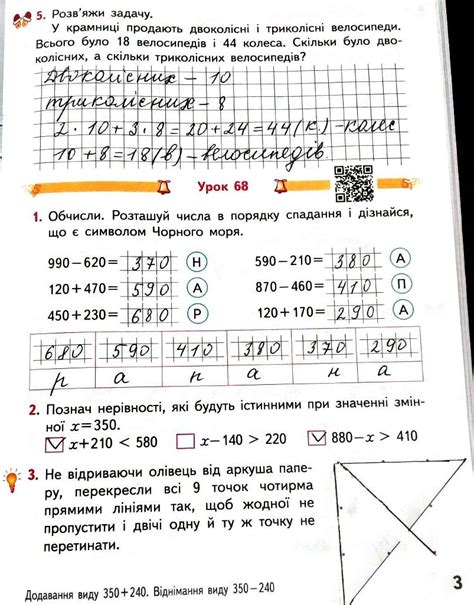 5. Розв'яжи задачу.
У крамниці продають двоколісні і триколісні велосипеди.
Всього було 18 велосипедів і 44 колеса. Скільки було дво-
колісних, а скільки триколісних велосипедів?
Двоколісних – 10
триколісних – 8
2 · 10 + 3 · 8 = 20 + 24 = 44 (к.) – колес
10 + 8 = 18 (в) – велосипедів
Урок 68
1. Обчисли. Розташуй числа в порядку спадання і дізнайся,
що є символом Чорного моря.
990 – 620 = 370 Н 590 – 210 = 380 А
120 + 470 = 590 А 870 – 460 = 410 П
450 + 230 = 680 Р 120 + 170 = 290 А
680 590 410 380 370 290
р а п а н а
2. Познач нерівності, які будуть істинними при значенні змін-
ної x = 350.
x + 210 < 580 x – 140 > 220 880 – x > 410
3. Не відриваючи олівець від аркуша папе-
ру, перекресли всі 9 точок чотирма
прямими лініями так, щоб жодної не
пропустити і двічі одну й ту ж точку не
перетинати.
Додавання виду 350 + 240. Віднімання виду 350 – 240
3